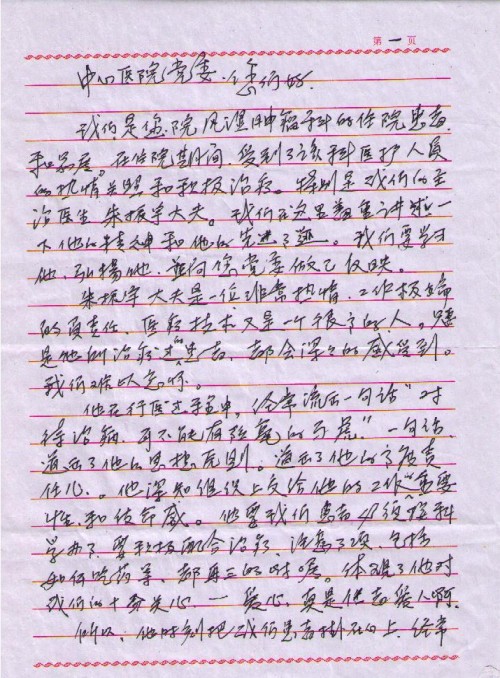 第一页
中心医院党委:您们好。
我们是您院风湿肿瘤科的住院患者
和家属。在住院期间,受到了该科医护人员
的热情关照和积极治疗。特别是我们的主
治医生朱振宇大夫。我们在这里着重讲述一
下他的精神和他的先进事迹。我们要学习
他、弘扬他,并向您党委做已反映。
朱振宇大夫是一位非常热情、工作极
的负责任,医疗技术又是一个很高的人。只要
是他所治疗过的患者,都会深深的感受到。
我们难以忘怀。
他在行医过程中,经常流露一句话"对
待治病,可不能有丝毫的马虎"一句话,
道出了他的思想原则。道出了他的高度责
任心。他深知组织上交给他的工作重要
性和使命感。他要我们患者必须按科
学办事,要积极配合治疗,注意事项,包括
如何吃药等,都再三的叮嘱。体现了他对
我们的十分关心——爱心,真是值得爱人啊。
所以,他时刻把我们患者挂在心上,经常